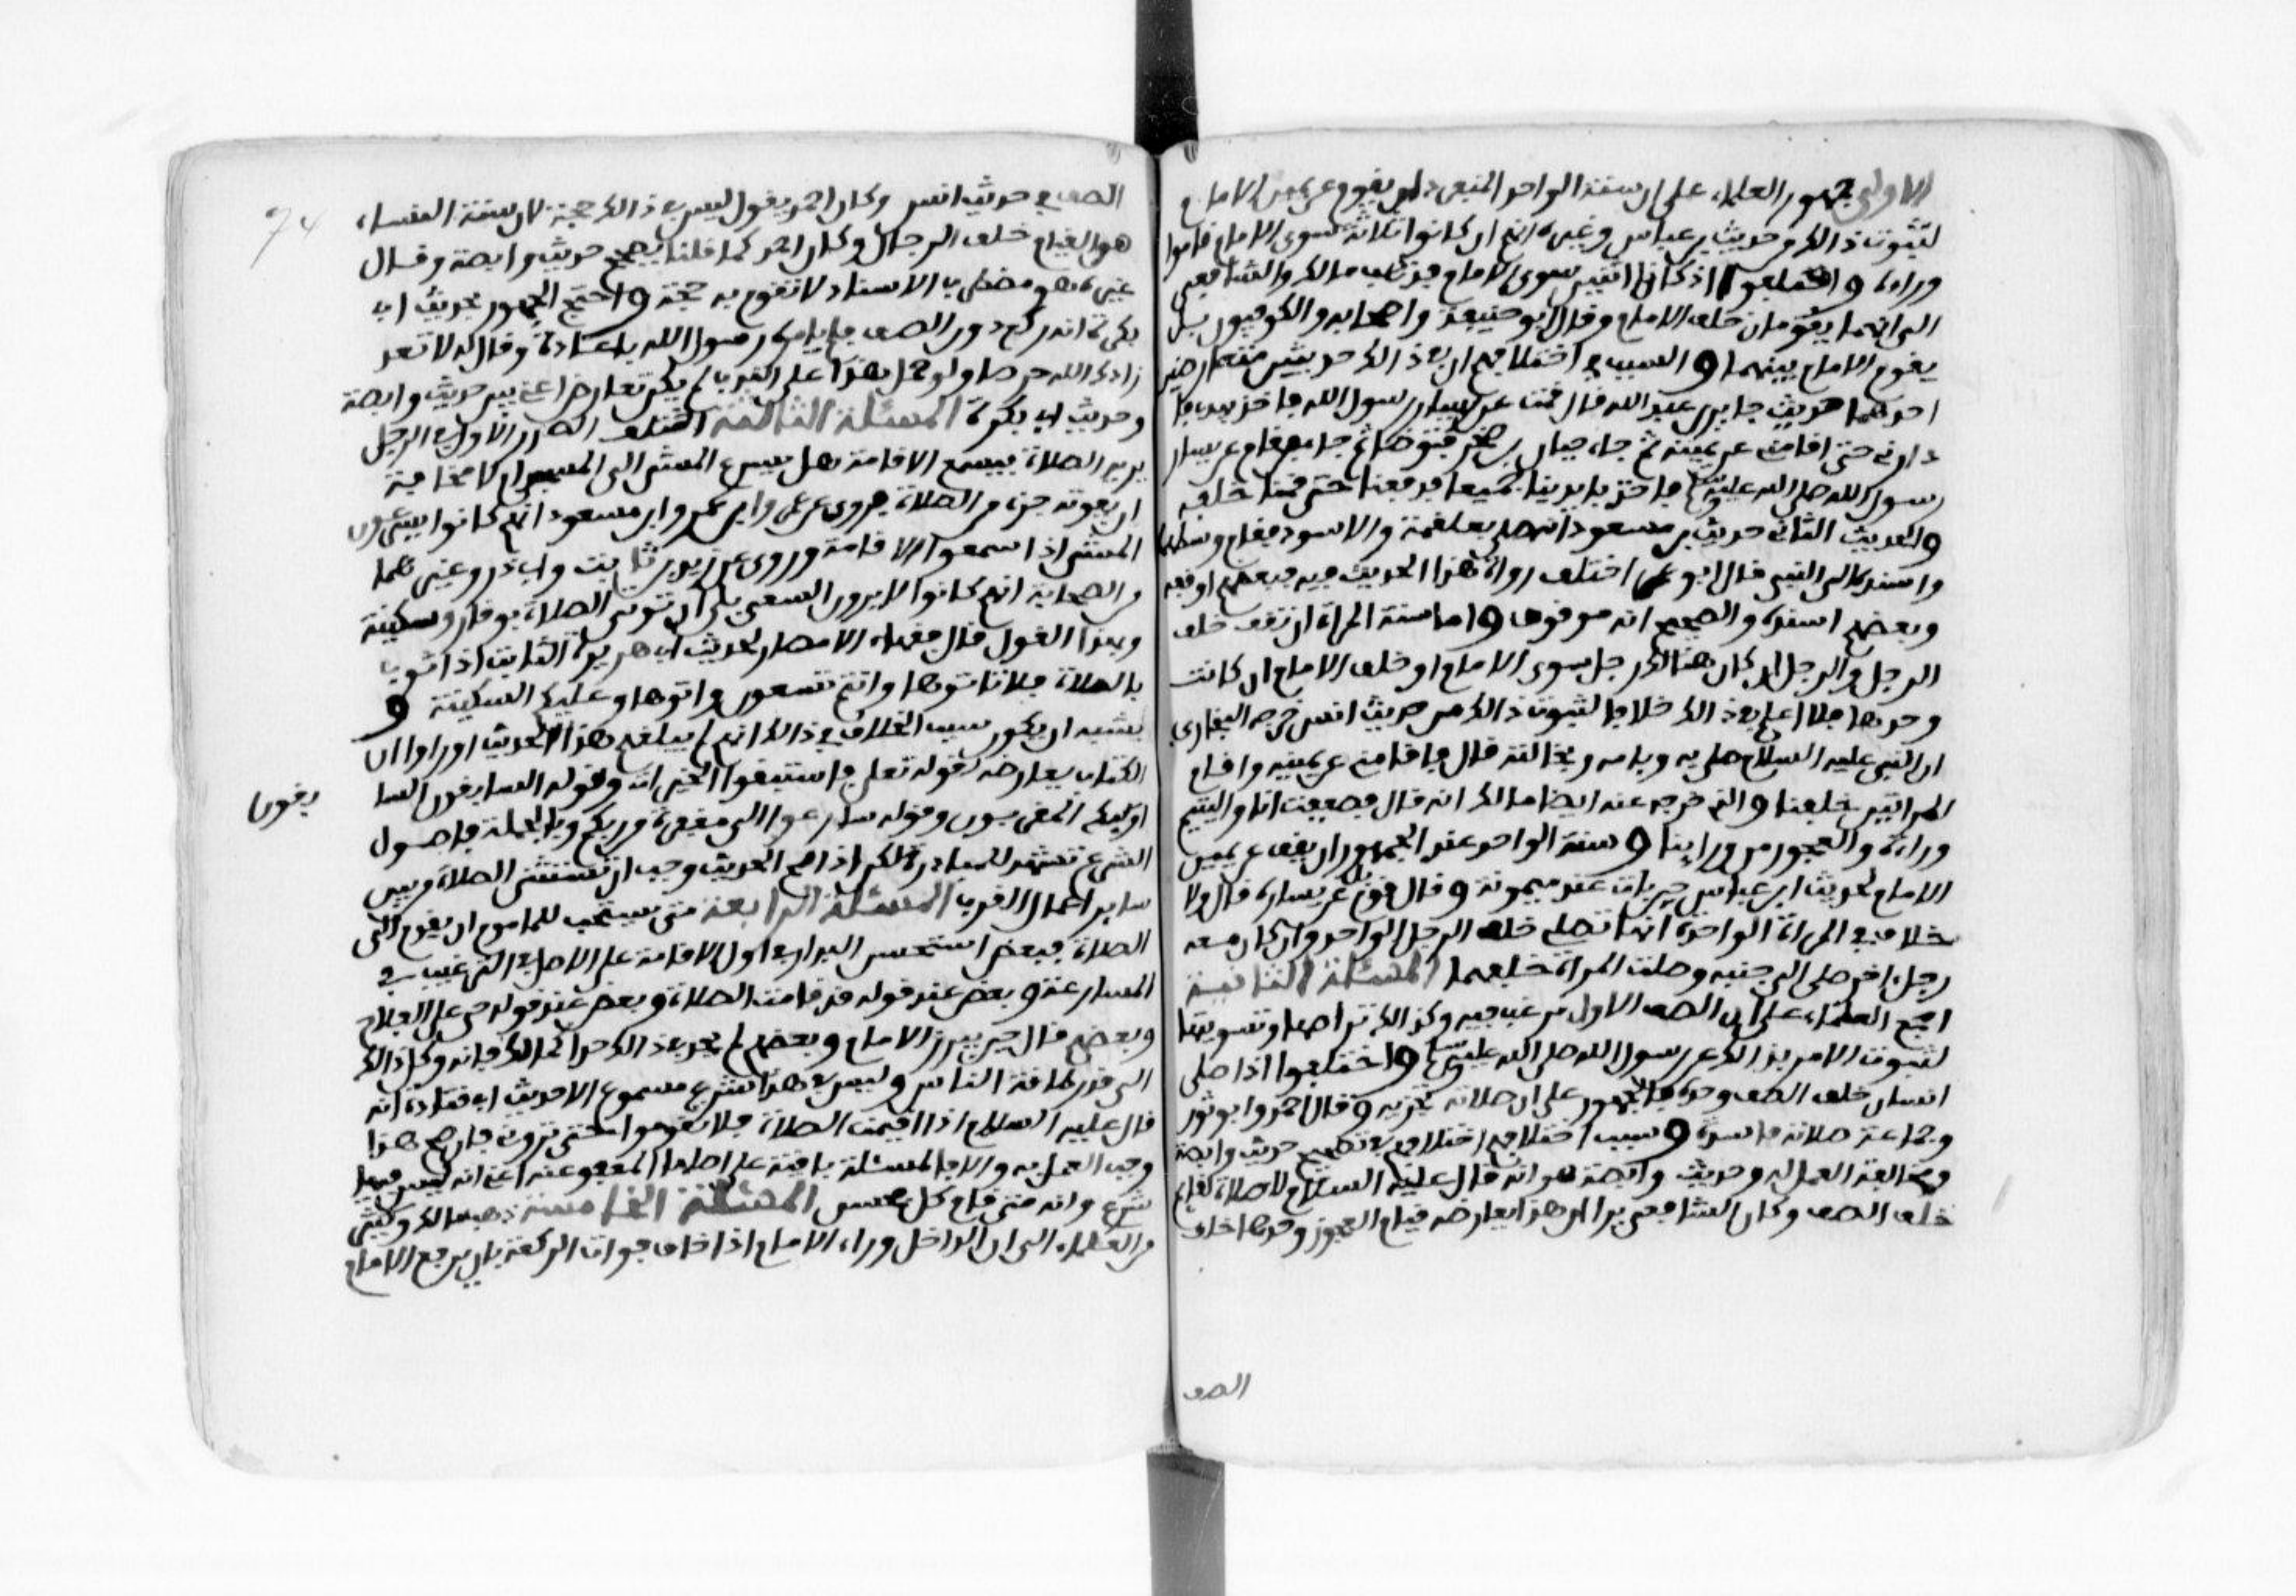 الاولى جمهور العلماء على ان سنة الواحد المنفرد ان يقوم عن يمين الامام
لثبوت ذالك من حديث بن عباس وغيره انهم ان كانوا ثلاثة سوى الامام قاموا
وراءه واختلفوا اذا كانا اثنين سوى الامام فذهب مالك والشافعي
الى انهما يقومان خلف الامام وقال ابو حنيفة واصحابه والكوفيون بل
يقوم الامام بينهما والسبب في اختلافهم ان في ذالك حديثين متعارضين
احدهما حديث جابر بن عبد الله قال قمت عن يسار رسول الله فاخذ بيدي فا
دارني حتى اقامني عن يمينه ثم جاء جبار بن صخر فتوضا ثم جاء فقام عن يسار
رسول الله صلى الله عليه وسلم فاخذ بايدينا جميعا فدفعنا حتى قمنا خلفه
والحديث الثاني حديث بن مسعود انه صلى بعلقمة والاسود فقام وسطهما
واسنده الى النبي قال ابو عمر اختلف رواة هذا الحديث فيه فبعضهم اوقفه
وبعضهم اسنده والصحيح انه موقوف واما سنة المراة ان تقف خلف
الرجل او الرجال ان كان هنالك رجل سوى الامام او خلف الامام ان كانت
وحدها فلا اعلم في ذالك خلافا لثبوت ذالك من حديث انس خرجه البخاري
ان النبي عليه السلام صلى به وبامه او بخالته قال فاقامني عن يمينه واقام
المراتين خلفنا والذي خرجه عنه ايضا مالك انه قال فصففت انا واليتيم
وراءه والعجوز من ورايٕنا وسنة الواحد عند الجمهور ان يقف عن يمين
الامام لحديث ابن عباس حين بات عند ميمونة وقال قوم بل عن يساره قال ولا
خلاف في المراة الواحدة انها تصلي خلف الرجل الواحد وان كان معه
رجل اخر صلى الى جنبه وصلت المراة خلفهما المسئلة الثانية
اجمع العلماء على ان الصف الاول مرغب فيه وكذالك تراصها وتسويتها
لثبوت الامر بذالك عن رسول الله صلى الله عليه وسلم واختلفوا اذا صلى
انسان خلف الصف وحده فالجمهور على ان صلاته تجزيه وقال احمد وابو ثور
وجماعة صلاته فاسدة وسبب اختلافهم اختلافهم في تصحيح حديث وابصة
ومخالفة العمل له وحديث وابصة هو انه قال عليه السلام لا صلاة لقايم
خلف الصف وكان الشافعي يرا ان هذا يعارضه قيام العجوز وحدها خلف
الصف
الصف في حديث انس وكان احمد يقول ليس في ذالك حجة لان سنة النساء
هو القيام خلف الرجال وكان احمد كما قلنا يصحح حديث وابصة وقال
غيره هو مضطرب الاسناد لا تقوم به حجة واحتج الجمهور بحديث ابي
بكرة انه ركع دون الصف فلم يامره رسول الله باعادة وقال له لا تعد
زادك الله حرصا ولو حمل هذا على الندب لم يكن تعارض اعني بين حديث وابصة
وحديث ابي بكرة المسئلة الثالثة اختلف الصدر الاول في الرجل
يريد الصلاة فيسمع الاقامة هل يسرع المشي الى المسجد ام لا مخافة
ان يفوته جزء من الصلاة فروى عن عمر وابن عمر وابن مسعود انهم كانوا يسرعون
المشي اذا سمعوا الاقامة وروى عن زيد بن ثابت وابي ذر وغيرهما
من الصحابة انهم كانوا لا يرون السعي بل ان توتى الصلاة بوقار وسكينة
وبهذا القول قال فقهاء الامصار لحديث ابي هريرة الثابت اذا ثوب
بالصلاة فلا تاتوها وانتم تسعون واتوها وعليكم السكينة و
يشبه ان يكون سبب الخلاف في ذالك انهم لم يبلغهم هذا الحديث او راوا ان
الكتاب يعارضه لقوله تعلى فاستبقوا الخيرات وقوله السابقون السا بقون
اولئكم المقربون وقوله سارعوا الى مغفرة من ربكم وبالجملة فاصول
الشرع تشهد للمبادرة لكن اذا صح الحديث وجب ان تستثنى الصلاة من بين
ساير اعمال القرب المسئلة الرابعة متى يستحب للماموم ان يقوم الى
الصلاة فبعض استحسن البدار في اول الاقامة على الاصل في الترغيب في
المسارعة وبعض عند قوله قد قامت الصلاة وبعض عند قوله حي على الفلاح
وبعضهم قال حين يرى الامام وبعضهم لم يحد في ذالك حدا كمالك فانه وكل ذالك
الى قدر طاقة الناس وليس في هذا شرع مسموع الا حديث ابي قتادة انه
قال عليه السلام اذا اقيمت الصلاة فلا تقوموا حتى تروني فان صح هذا
وجب العمل به والا فالمسئلة باقية على اصلها المعفو عنه اعني انه ليس فيها
شرع وانه متى قام كل فحسن المسئلة الخامسة ذهب مالك وكثير
من العلماء الى ان الداخل وراء الامام اذا خاف فوات الركعة بان يرفع الامام
74